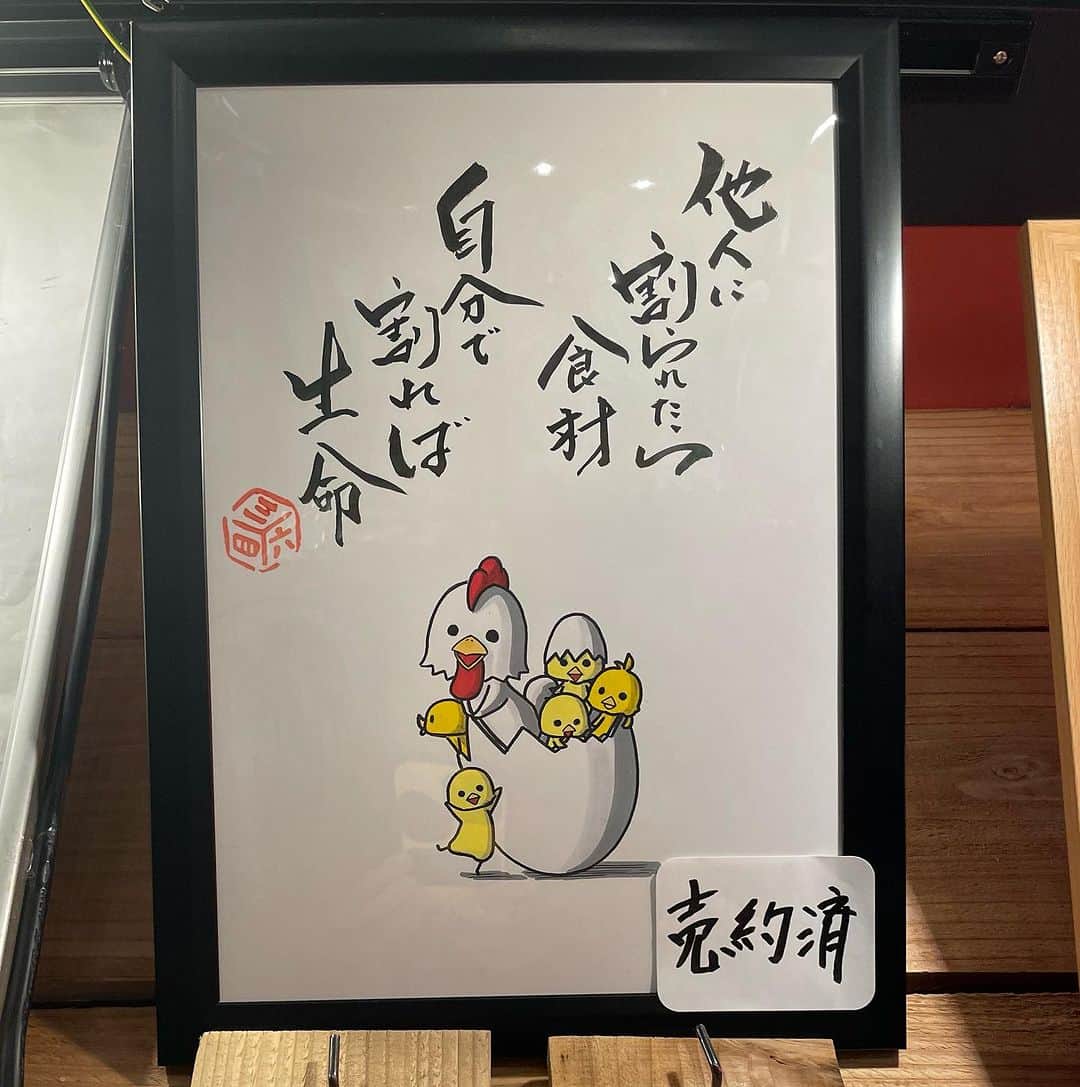 他人に
割られたら
食材
自分で
割れば
生命
売約済